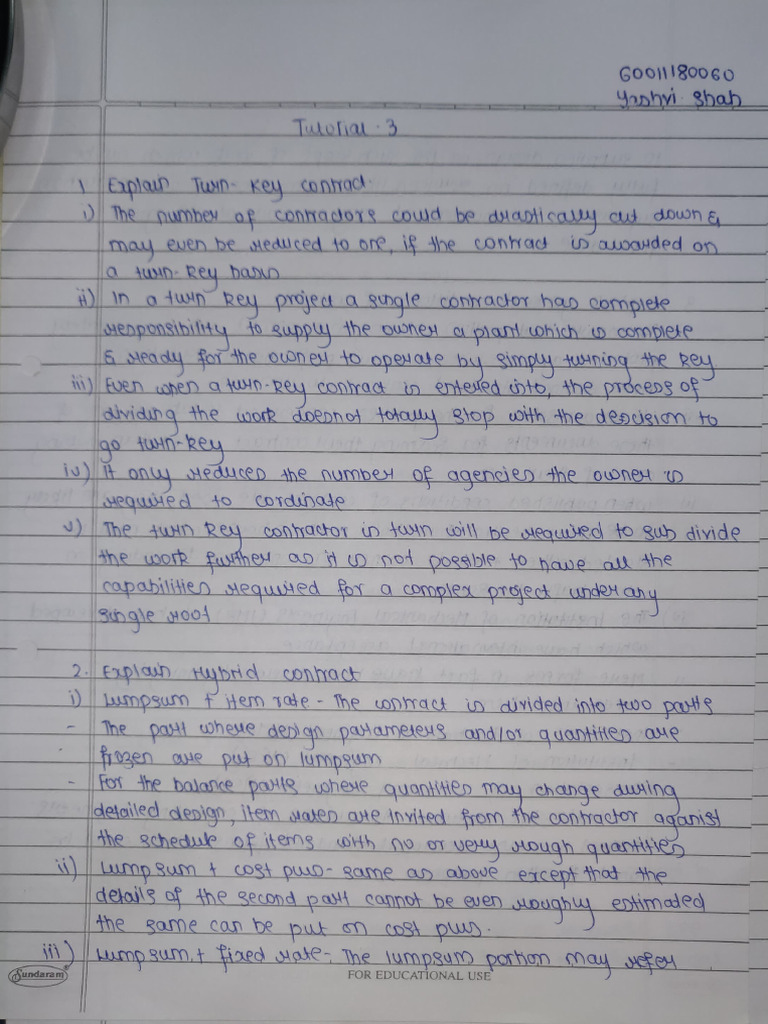 60011180060
Yashvi. Shah
Tutorial. 3
1 Explain Turn-Key contract.
i) The number of contractors could be drastically cut down &
may even be reduced to one, if the contract is awarded on
a turn-key basis
ii) In a turn key project a single contractor has complete
responsibility to supply the owner a plant which is complete
& ready for the owner to operate by simply turning the key
iii) Even when a turn-key contract is entered into, the process of
dividing the work doesnot totally stop with the descision to
go turn-key
iv) It only reduces the number of agencies the owner is
required to cordinate
v) The turn key contractor in turn will be required to sub divide
the work further as it is not possible to have all the
capabilities required for a complex project under any
single roof
2. Explain Hybrid contract
i) Lumpsum + item rate - The contract is divided into two parts
- The part where design parameters and/or quantities are
frozen are put on lumpsum
- For the balance parts where quantities may change during
detailed design, item rates are invited from the contractor aganist
the schedule of items with no or very rough quantities
ii) Lumpsum + cost plus - same as above except that the
details of the second part cannot be even roughly estimated
the same can be put on cost plus.
iii) Lumpsum + fixed rate - The lumpsum portion may refer
Sundaram
FOR EDUCATIONAL USE